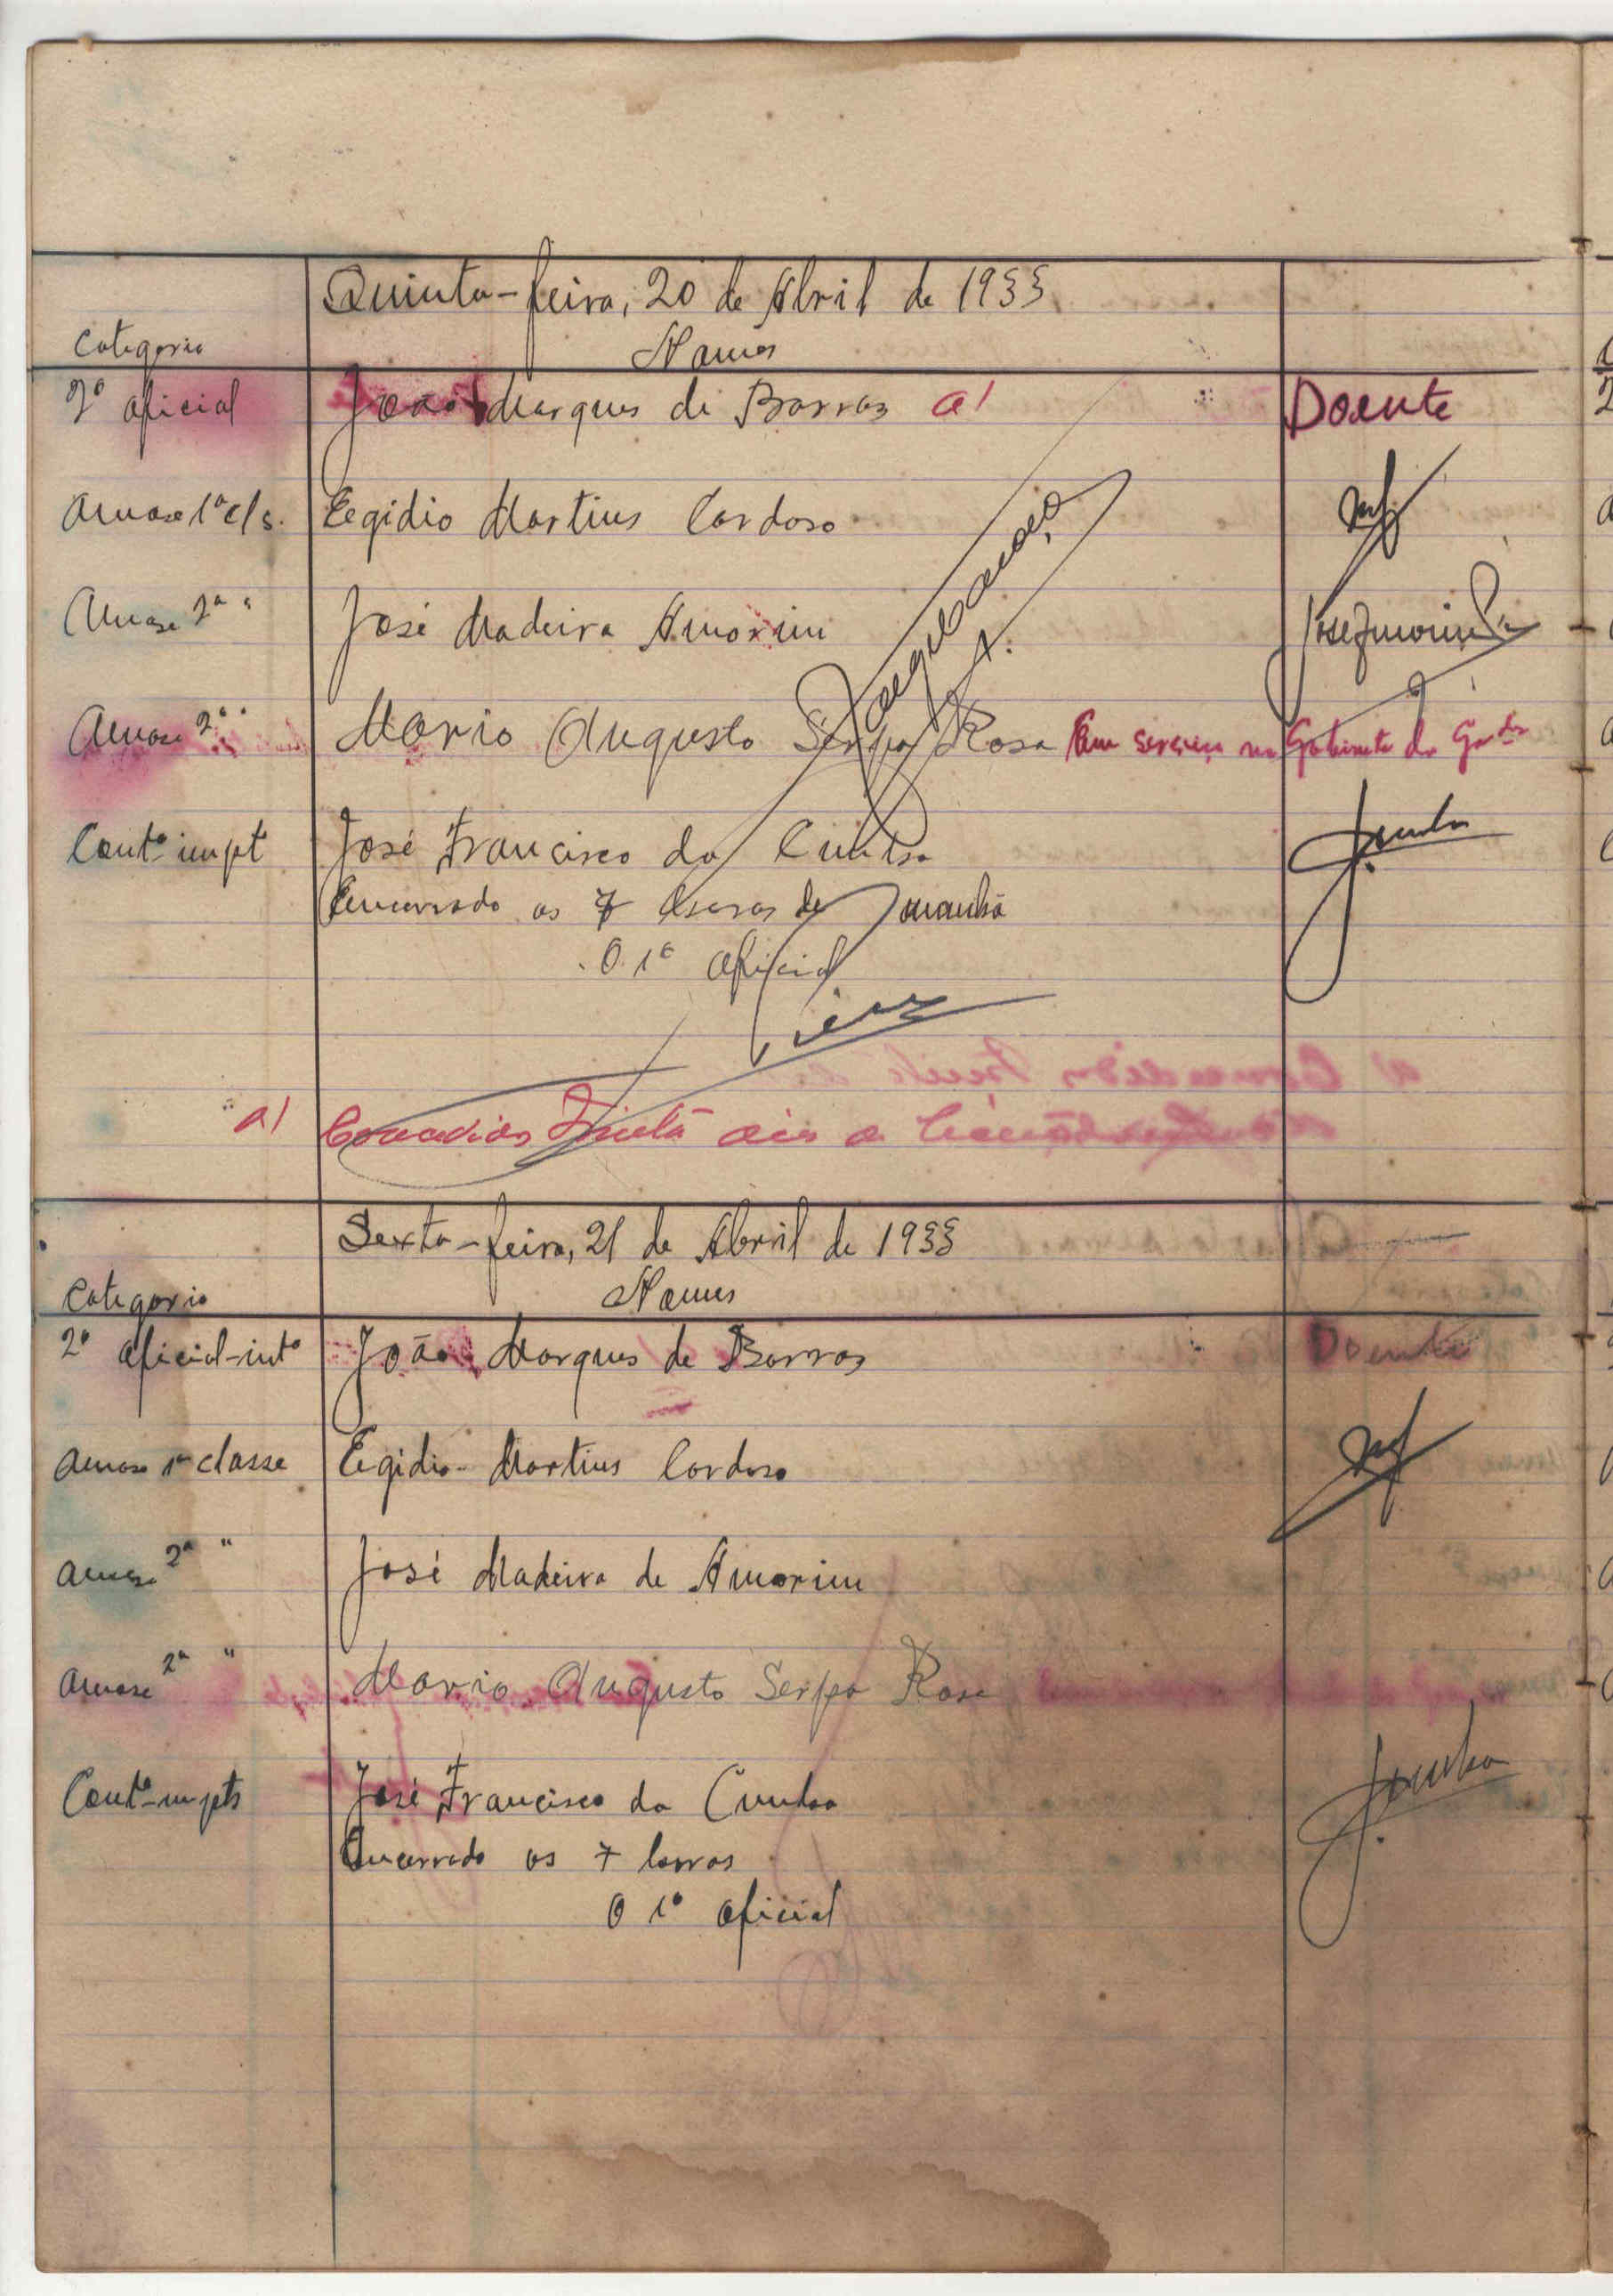 Quinta-feira, 20 de Abril de 1933
Categoria Nomes
2º oficial João Marques de Barros a) Doente
Amase 1ª cls. Egidio Martins Cardoso
Amase 2ª " José Madeira Amorim
Amase 2ª " Mario Augusto Serpa Rosa Em serviço no Gabinete do
Contº impt José Francisco da Cunha
Encerrado as 7 horas da manhã
O 1º oficial
a) Concedidos Trinta dias de
Sexta-feira, 21 de Abril de 1933
Categoria Nomes
2º oficial-intº João Marques de Barros Doente
Amase 1ª classe Egidio Martins Cardoso
Amase 2ª " José Madeira de Amorim
Amase 2ª " Mario Augusto Serpa Rosa
Contº impts José Francisco da Cunha
Encerrado as 7 horas
O 1º oficial